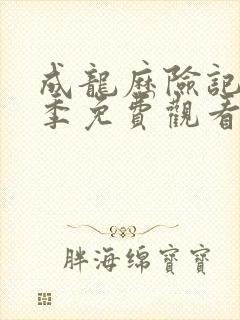 成龍歷險記
季免費觀看
胖海綿寶寶